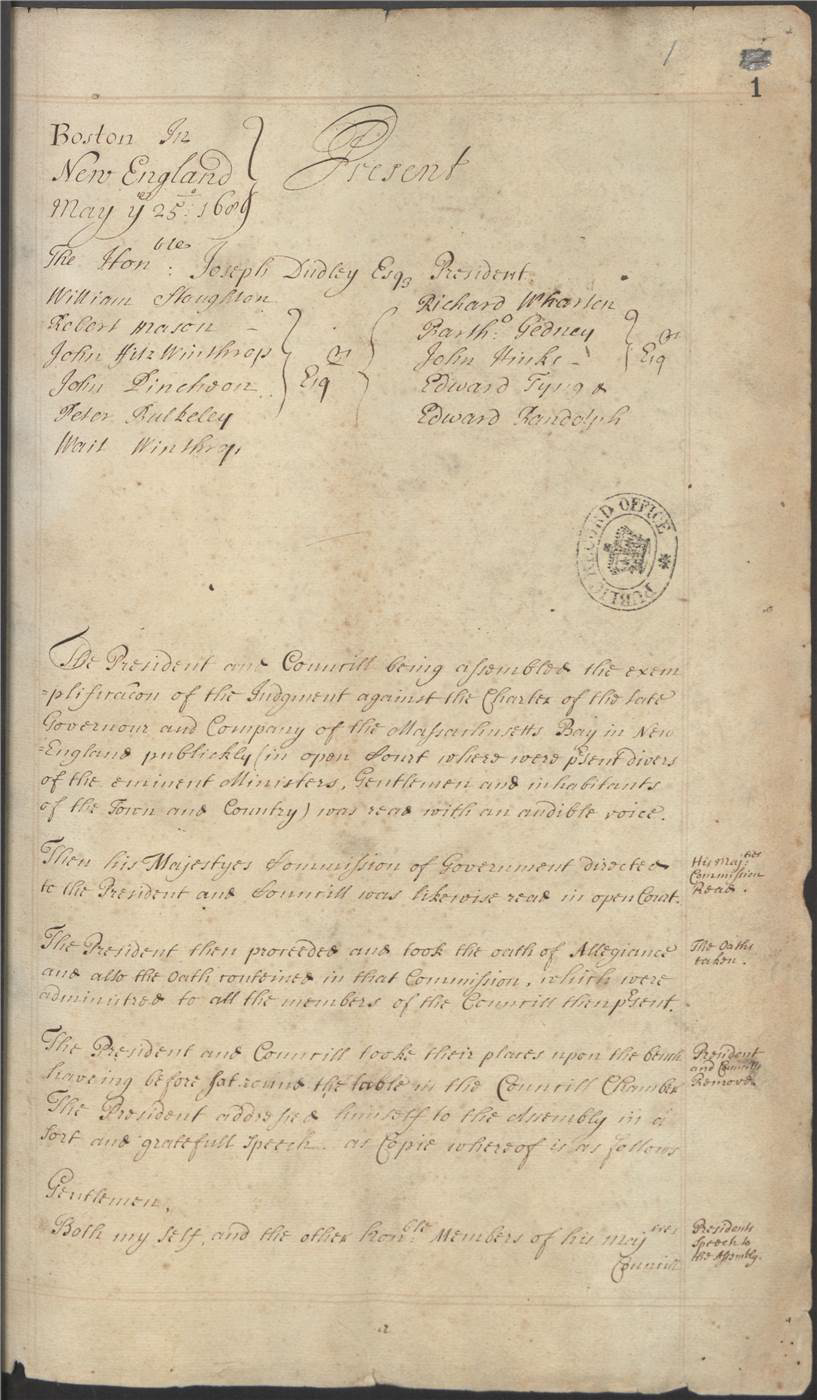 1
1
Boston In
New England
May ye 25o: 1686
Present
The Honble: Joseph Dudley Esqr President
William Stoughton
Robert Mason
John Fitz Winthrop
John Pincheon
Peter Bulkeley
Wait Winthrop
Esqrs
Richard Wharton
Bartho: Gedney
John Hinks
Edward Tyng
Edward Randolph
Esqrs
PUBLIC RECORD OFFICE
The President and Councill being assembled the exem
=plificacon of the Judgment against the Charter of the late
Governour and Company of the Massachusetts Bay in New
=England publickly (in open Court where were psent divers
of the eminent Ministers, Gentlemen and inhabitants
of the Town and Country) was read with an audible voice.
Then his Majestyes Commission of Government directed
to the President and Councill was likewise read in open Court.
His Majties
Commission
Read.
The President then proceeded and took the oath of Allegiance
and also the Oath conteined in that Commission, which were
administred to all the members of the Councill then psent.
The Oaths
taken.
The President and Councill tooke their places upon the bench
haveing before sat round the table in the Councill Chamber
The President addressed himself to the Assembly in a
sort and gratefull speech. as Copie whereof is as follows
President
and Councill
Remove
Gentlemen,
Both my self, and the other honble: Members of his Majties
Councill
Presidents
Speech to
the Assembly.